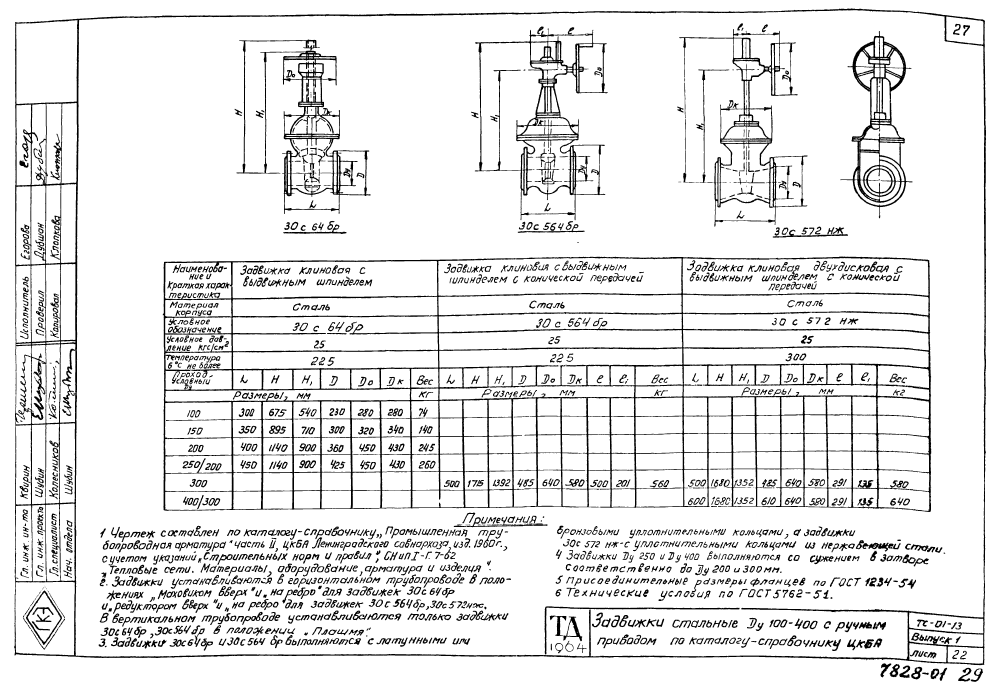 27
ℓ₁ ℓ
ℓ₁ ℓ
H H₁ Dо Dк Dу D L
H H₁ Dо Dк Dу D L
H H₁ Dо Dк Dу D L
30с 64 бр
30с 564 бр
30с 572 нж
Наименование и краткая характеристика
Задвижка клиновая с выдвижным шпинделем
Задвижка клиновая с выдвижным шпинделем с конической передачей
Задвижка клиновая двухдисковая с выдвижным шпинделем с конической передачей
Материал корпуса Сталь Сталь Сталь
Условное обозначение 30 с 64 бр 30 с 564 бр 30 с 572 нж
Условное давление кгс/см² 25 25 25
Температура в °С не более 225 225 300
Проход условный Dу L H H₁ D Dо Dк Вес L H H₁ D Dо Dк ℓ ℓ₁ Вес L H H₁ D Dо Dк ℓ ℓ₁ Вес
Размеры, мм кг Размеры, мм кг Размеры, мм кг
100 300 675 540 230 280 280 74
150 350 895 710 300 320 340 140
200 400 1140 900 360 450 430 245
250/200 450 1140 900 425 450 430 260
300 500 1715 1392 485 640 580 500 201 560 500 1680 1352 485 640 580 291 135 580
400/300 600 1680 1352 610 640 580 291 135 640
Примечания:
1 Чертеж составлен по каталогу-справочнику „Промышленная тру-
бопроводная арматура" часть II, ЦКБА Ленинградского совнархоза, изд. 1960г.,
с учетом указаний „Строительных норм и правил". СНиП I-Г. 7-62
„Тепловые сети. Материалы, оборудование, арматура и изделия".
2. Задвижки устанавливаются в горизонтальном трубопроводе в поло-
жениях „Маховиком вверх" и „на ребро" для задвижек 30с 64бр
и „редуктором вверх" и „на ребро" для задвижек 30с 564бр, 30с 572нж.
В вертикальном трубопроводе устанавливаются только задвижки
30с 64 бр, 30с 564 бр в положении „Плашмя".
3. Задвижки 30с 64 бр и 30с 564 бр выполняются с латунными или
бронзовыми уплотнительными кольцами, а задвижки
30с 572 нж-с уплотнительными кольцами из нержавеющей стали.
4 Задвижки Dу 250 и Dу 400 выполняются со сужением в затворе
соответственно до Dу 200 и 300мм.
5 Присоединительные размеры фланцев по ГОСТ 1234-54
6 Технические условия по ГОСТ 5762-51.
ТД
1964
Задвижки стальные Dу 100-400 с ручным
приводом по каталогу-справочнику ЦКБА
ТС-01-13
Выпуск 1
лист 22
7828-01 29
Гл. инж. ин-та Квирин
Гл. инж. проекта Шубин
Гл. специалист Колесников
Нач. отдела Шубин
Исполнитель Егорова
Проверил Дубшан
Копировал Клопкова
КЭ